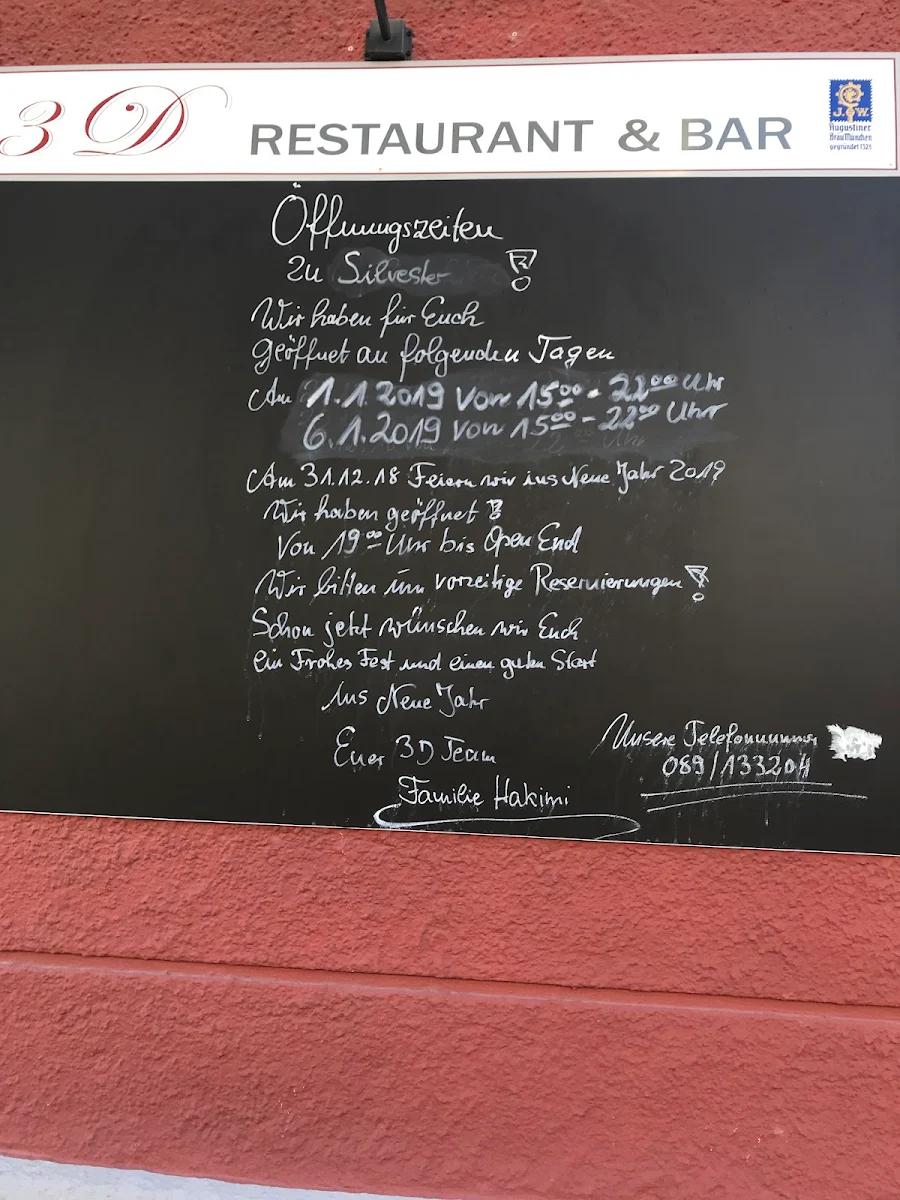 3 D RESTAURANT & BAR
J. W.
Augustiner
Bräu München
gegründet 1328
Öffnungszeiten
zu Silvester !
Wir haben für Euch
geöffnet an folgenden Tagen
Am 1.1.2019 von 15⁰⁰ - 22⁰⁰ Uhr
6.1.2019 von 15⁰⁰ - 22⁰⁰ Uhr
Am 31.12.18 Feiern wir ins Neue Jahr 2019
Wir haben geöffnet !
Von 19⁰⁰ Uhr bis Open End
Wir bitten um vorzeitige Reservierungen !
Schon jetzt wünschen wir Euch
ein Frohes Fest und einen guten Start
ins Neue Jahr
Euer 3D Team
Familie Hakimi
Unsere Telefonnummer
089/133204